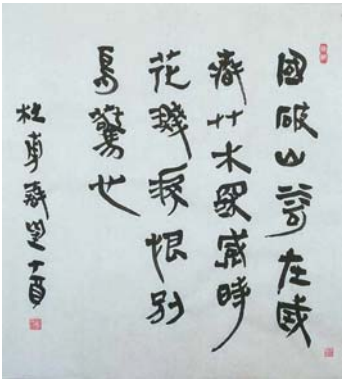 國破山河在城
春艸木深感時
花濺淚恨別
鳥驚心
杜甫春望丁酉